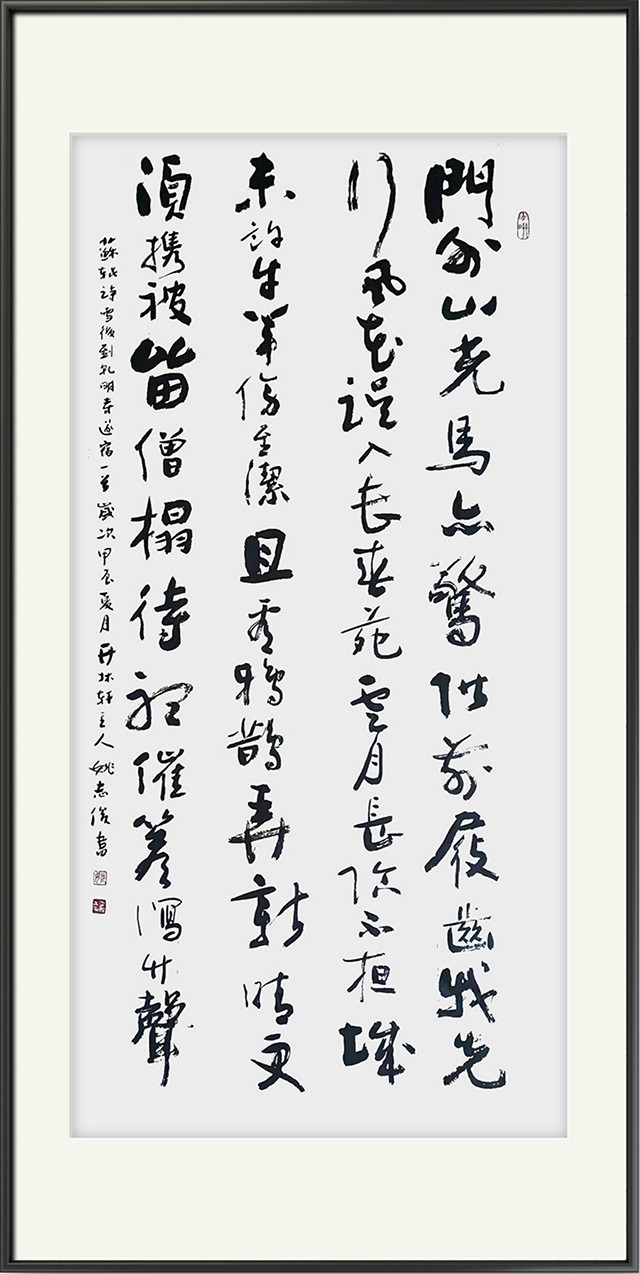 門外山光馬亦驚階前屐齒我先
行風花誤入長春苑雲月長臨不夜城
未許牛羊傷至潔且看鴉鵲弄新晴更
須携被留僧榻待聽催簷瀉竹聲
蘇軾詩雪後到乾明寺遂宿一首歲次甲辰夏月軒主人姚志俊書